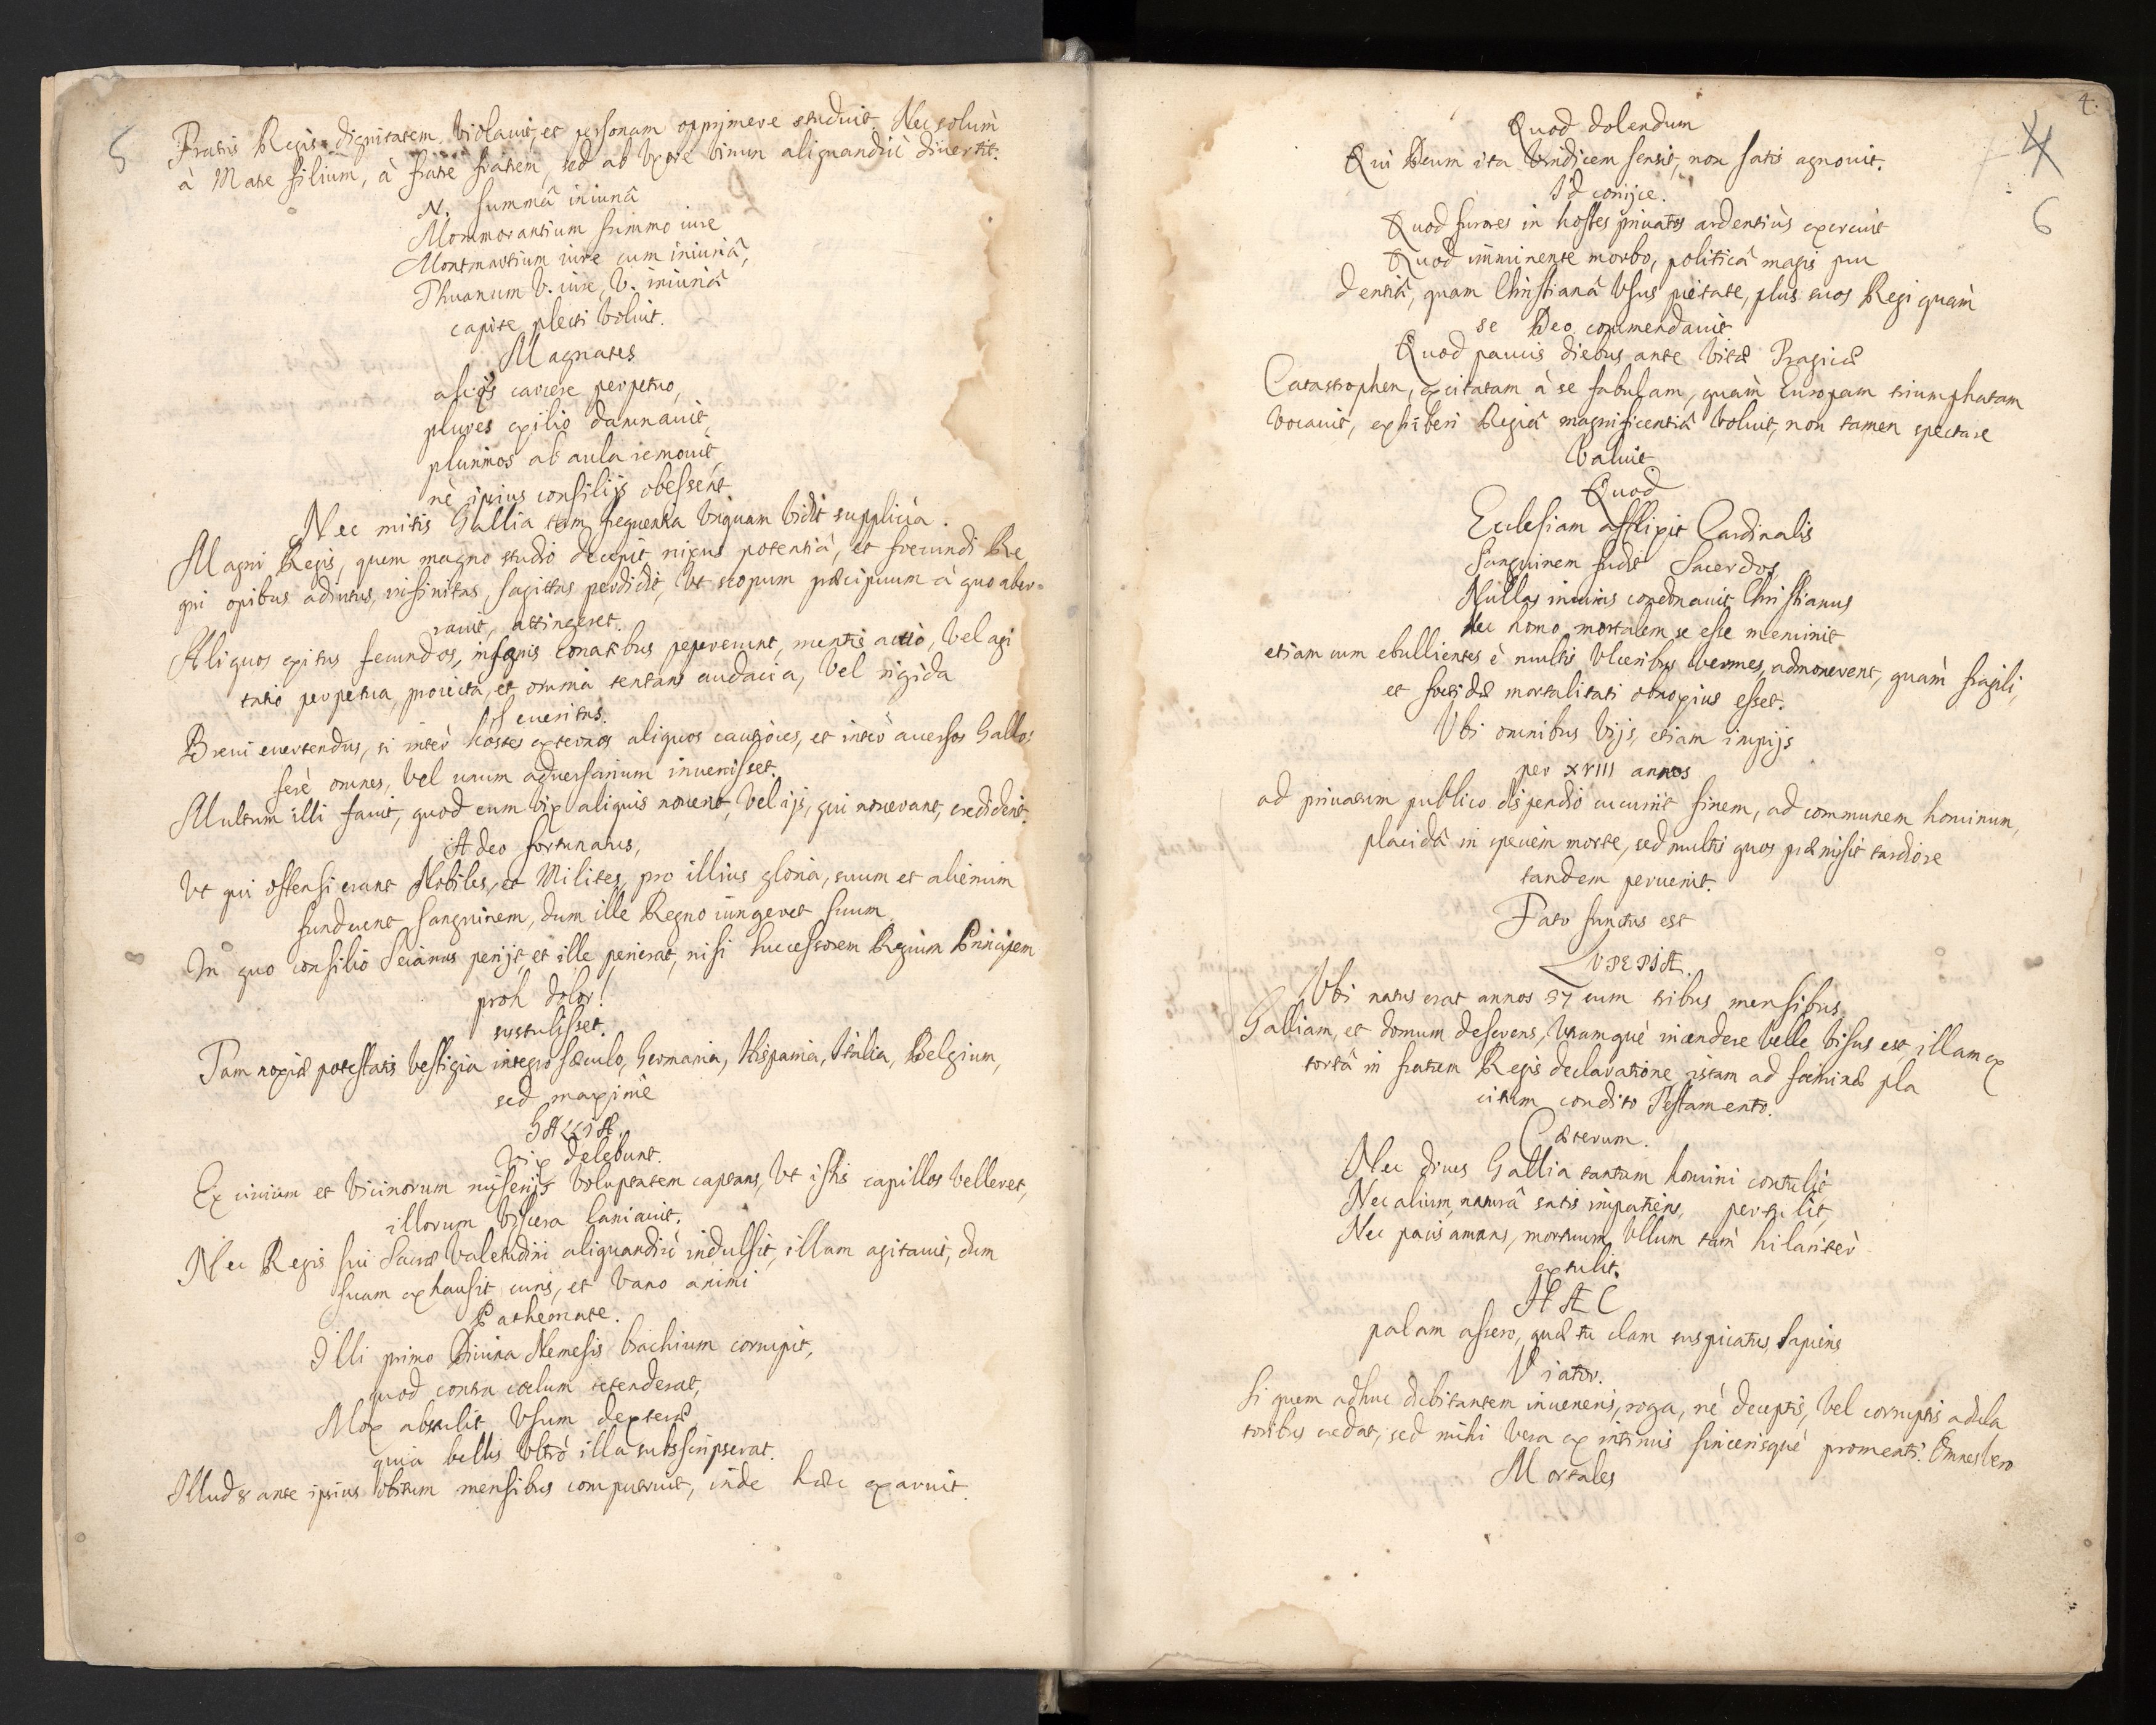 5
Fratris Regis dignitatem violauit, et personam opprimere studuit, Nec solum
à Matre filium, à fratre fratrem, sed ab Vxore virum aliquandiù diuertit.
N. summâ iniuriâ
Mommorantium summo iure
Montmartium iure cum iniuriâ,
Thuanum V. iure, V. iniuriâ
capite plecti voluit.
Magnates
alios carcere perpetuo,
plures exilio damnauit,
plurimos ab aula remouit,
nè ipsius consilijs obessent
Nec mitis Gallia tam frequentia vnquam vidit supplicia.
Magni Regis, quem magno studio decepit nixus potentiâ, et foecundi Re
gni opibus adiutus, infinitas sagittas perdidit, Vt scopum præcipuum à quo aber=
rauit, attingeret.
Aliquos exitus fecundos, insanis conatibus pepererunt, mentis actio, Vel agi
tatio perpetua, proiecta, et omnia tentans audacia, Vel rigida
seueritas.
Breui euertendus, si inter hostes externos aliquos cautiores, et inter auersos Gallos
ferè omnes, Vel unum aduersarium inuenisset.
Multum illi fauit, quod eum vix aliquis nouerit, Vel ijs, qui nouerant, crediderit.
Adeo fortunatus,
Vt qui offensi erant Nobiles, et Milites, pro illius gloria, suum et alienum
funderent sanguinem, dum ille Regno iungeret suum.
In quo consilio Seianus perijt, et ille perierat, nisi successorem Regium Principem
proh dolor!
sustulisset.
Tam noxiæ potestatis vestigia integro sæculo, Germania, Hispania, Italia, Belgium,
sed maximè
GALLIA.
Vix delebunt.
Ex ciuium et vicinorum miserijs voluptatem captans, Vt istis capillos velleret,
illorum viscera laniauit.
Nec Regis sui sacræ valetudini aliquandiù indulsit, illam agitauit, dum
suam exhausit curis, et vano animi
Pathemate.
Illi primo Diuina Nemesis brachium corrupit,
quod contra coelum tetenderat,
Mox abstulit Vsum dexteræ
quia bellis vltrò illa subsscripserat.
Illud 8 ante ipsius obitum mensibus computruit, inde hæc exaruit.
4.
4
6
Quod dolendum
Qui Deum ita Vindicem sensit, non satis agnouit.
Id conijce.
Quod furores in hostes priuatos ardentiùs exercuit
Quod imminente morbo, politicâ magis pru
dentiâ, quam Christianâ Vsus pietate, plus suos Regi quàm
se Deo commendauit
Quod paucis diebus ante Vitæ Tragicæ
Catastrophen, excitatam à se fabulam, quàm Europam triumphatam
vocauit, exhiberi Regiâ magnificentiâ voluit, non tamen spectare
valuit
Quod
Ecclesiam afflixit Cardinalis
Sanguinem fudit Sacerdos
Nullas iniurias condonauit Christianus
Nec homo mortalem se esse meminit
etiam cum ebullientes è multis Vlceribus vermes, admonerent, quàm fragili,
et foetidæ mortalitati obnoxius esset.
Vbi omnibus vijs, etiam impijs
per XVIII annos
ad priuatum publico dispendio cucurrit finem, ad communem hominum,
placidâ in speciem morte, sed multis quos præmisit tardiore
tandem peruenit.
Fato functus est
LVTETIÆ.
Vbi natus erat annos 57 cum tribus mensibus
Galliam, et domum deserens, Vtramquè incendere velle visus est, illam ex
tortâ in fratrem Regis declaratione, istam ad foeminæ pla
citum condito Testamento.
Cæterum.
Nec diues Gallia tantum homini contulit
Nec alium, naturâ satis impatiens, pertulit,
Nec pacis amans, mortuum Vllum tam hilaritèr
extulit.
HÆC
palam assero, quæ tu clam suspicatus, Sapiens
Viator.
Si quem adhuc dubitantem inueneris, roga, nè deceptis, Vel corruptis adula
toribus credat, sed mihi vera ex intimis sincerisquè promenti. Omnes vero
Mortales